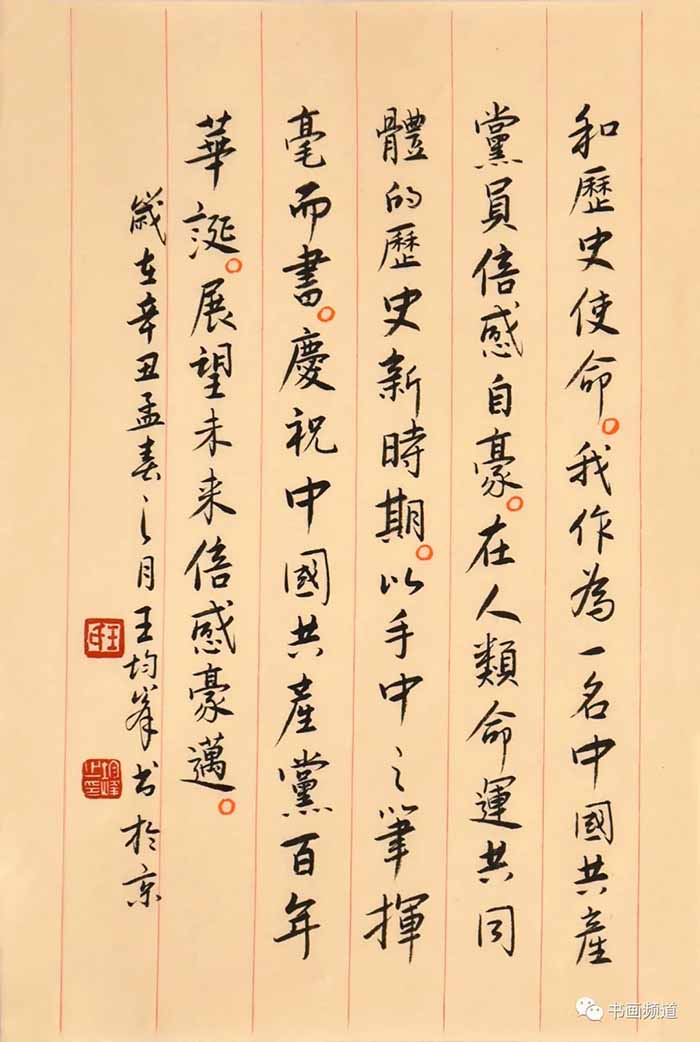 和歷史使命。我作為一名中國共產
黨員倍感自豪。在人類命運共同
體的歷史新時期。以手中之筆揮
毫而書。慶祝中國共產黨百年
華誕。展望未来倍感豪邁。
歲在辛丑孟春之月王均峰书於京
王
均峰之印
书画频道